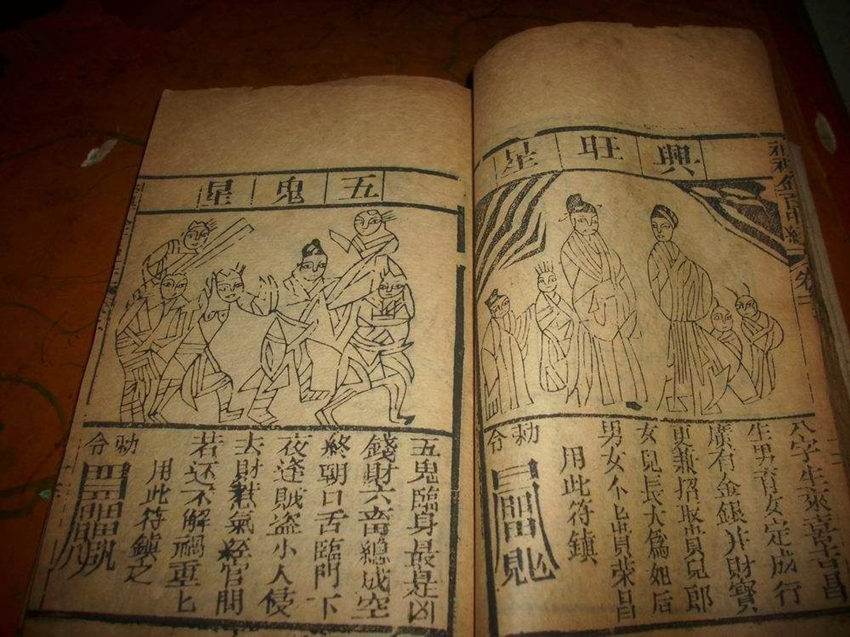 興旺星
八字生來喜吉昌
生男育女定成行
廣有金銀并財寶
更兼招取貴兒郎
女兒長大為妃后
男女个出貴荣昌
用此符鎮
勅令
五鬼星
五鬼臨身最是凶
錢財六畜總成空
終朝口舌臨門下
夜逢賊盗小人侵
去財惹氣經官問
若还不解禍重
用此符鎮之
勅令